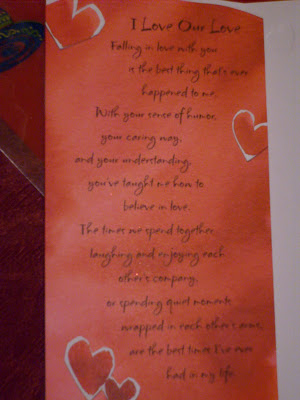 I Love Our Love
Falling in love with you
is the best thing that's ever
happened to me.
With your sense of humor,
your caring way,
and your understanding,
you've taught me how to
believe in love.
The times we spend together,
laughing and enjoying each
other's company,
or spending quiet moments
wrapped in each other's arms,
are the best times I've ever
had in my life.